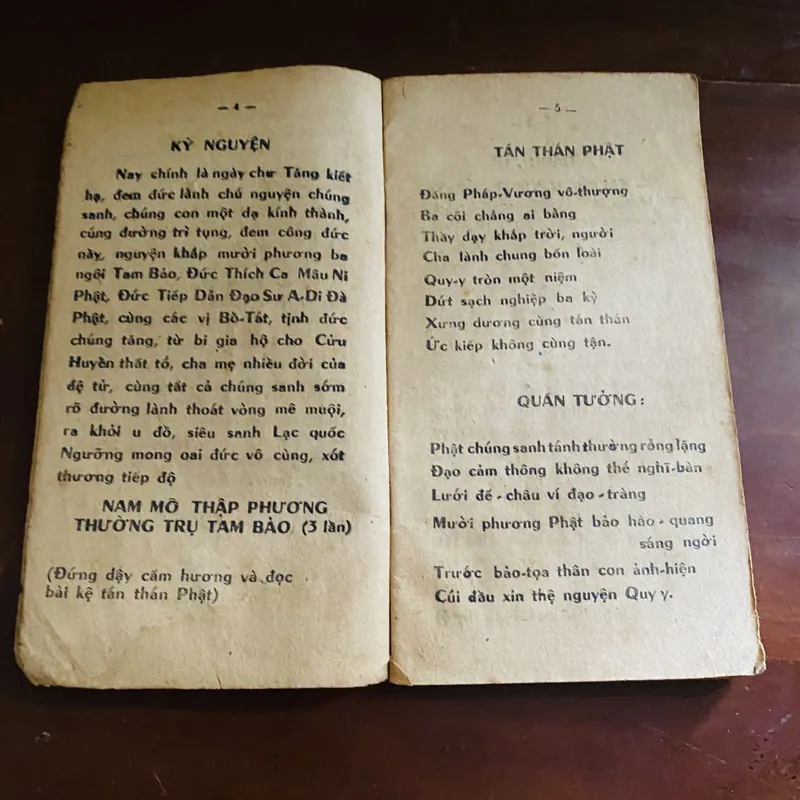 — 4 —
KỲ NGUYỆN
Nay chính là ngày chư Tăng kiết
hạ, đem đức lành chú nguyện chúng
sanh, chúng con một dạ kính thành,
cúng dường trì tụng, đem công đức
này, nguyện khắp mười phương ba
ngôi Tam Bảo, Đức Thích Ca Mâu Ni
Phật, Đức Tiếp Dẫn Đạo Sư A-Di Đà
Phật, cùng các vị Bồ-Tát, tịnh đức
chúng tăng, từ bi gia hộ cho Cửu
Huyền thất tổ, cha mẹ nhiều đời của
đệ tử, cùng tất cả chúng sanh sớm
rõ đường lành thoát vòng mê muội,
ra khỏi u đồ, siêu sanh Lạc quốc
Ngưỡng mong oai đức vô cùng, xót
thương tiếp độ
NAM MÔ THẬP PHƯƠNG
THƯỜNG TRỤ TAM BẢO (3 lần)
(Đứng dậy cầm hương và đọc
bài kệ tán thán Phật)
— 5 —
TÁN THÁN PHẬT
Đấng Pháp-Vương vô-thượng
Ba cõi chẳng ai bằng
Thầy dạy khắp trời, người
Cha lành chung bốn loài
Quy-y tròn một niệm
Dứt sạch nghiệp ba kỳ
Xưng dương cùng tán thán
Ức kiếp không cùng tận.
QUÁN TƯỞNG :
Phật chúng sanh tánh thường rỗng lặng
Đạo cảm thông không thể nghĩ-bàn
Lưới đế-châu ví đạo-tràng
Mười phương Phật bảo hào-quang
sáng ngời
Trước bảo-tọa thân con ảnh-hiện
Cúi đầu xin thệ nguyện Quy y.